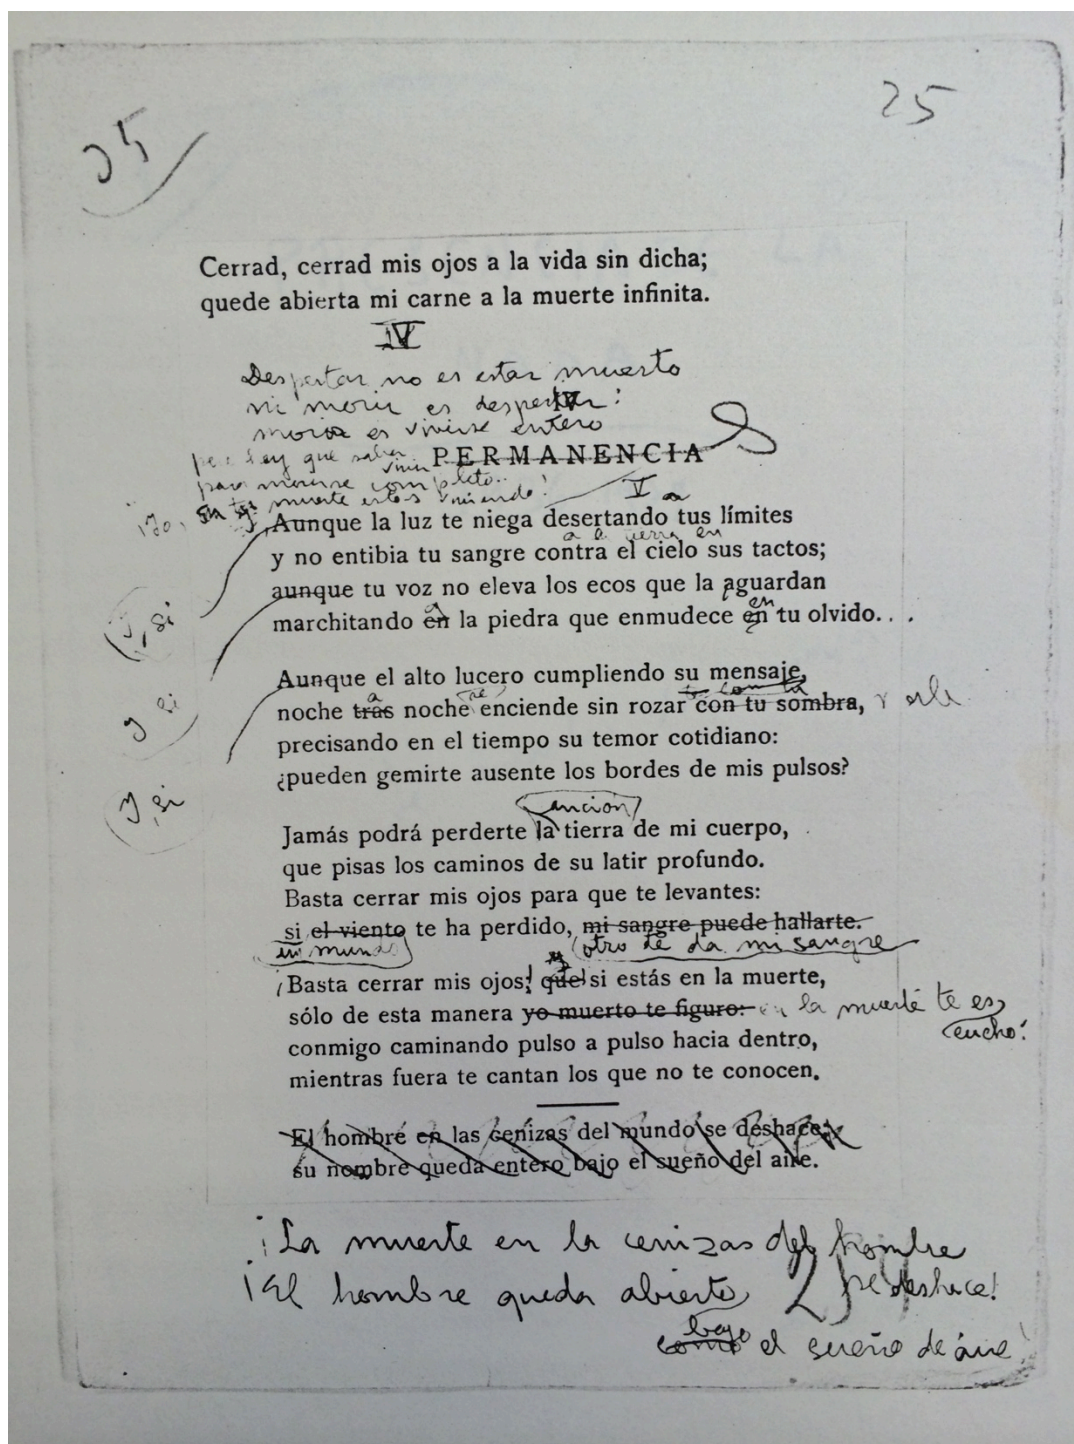 25
35
Cerrad, cerrad mis ojos a la vida sin dicha;
quede abierta mi carne a la muerte infinita.
IV
Despertar no es estar muerto
ni morir es despertar:
morir es vivirse entero
hay que saber vivir
PERMANENCIA
para morirse completo..
V
muerte estás viviendo!
Aunque la luz te niega desertando tus límites
y no entibia tu sangre contra el cielo sus tactos;
aunque tu voz no eleva los ecos que la aguardan
marchitando en la piedra que enmudece en tu olvido...
Y, si
Aunque el alto lucero cumpliendo su mensaje,
noche tras noche enciende sin rozar con tu sombra,
Y si
precisando en el tiempo su temor cotidiano:
¿pueden gemirte ausente los bordes de mis pulsos?
Y, si
canción
Jamás podrá perderte la tierra de mi cuerpo,
que pisas los caminos de su latir profundo.
Basta cerrar mis ojos para que te levantes:
si el viento te ha perdido, mi sangre puede hallarte.
un mundo otro te da mi sangre
¡Basta cerrar mis ojos! que si estás en la muerte,
sólo de esta manera yo muerto te figuro: en la muerte te es
cucho!
conmigo caminando pulso a pulso hacia dentro,
mientras fuera te cantan los que no te conocen.
El hombre en las cenizas del mundo se deshace;
su nombre queda entero bajo el sueño del aire.
¡La muerte en la cenizas del hombre
se deshace!
¡El hombre queda abierto
bajo
como el sueño de ave!